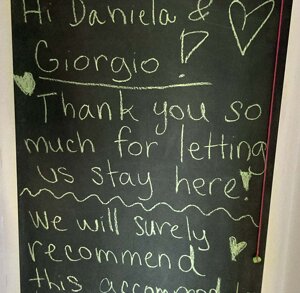 Hi Daniela &
Giorgio!
Thank you so
much for letting
us stay here!
We will surely
recommend
this